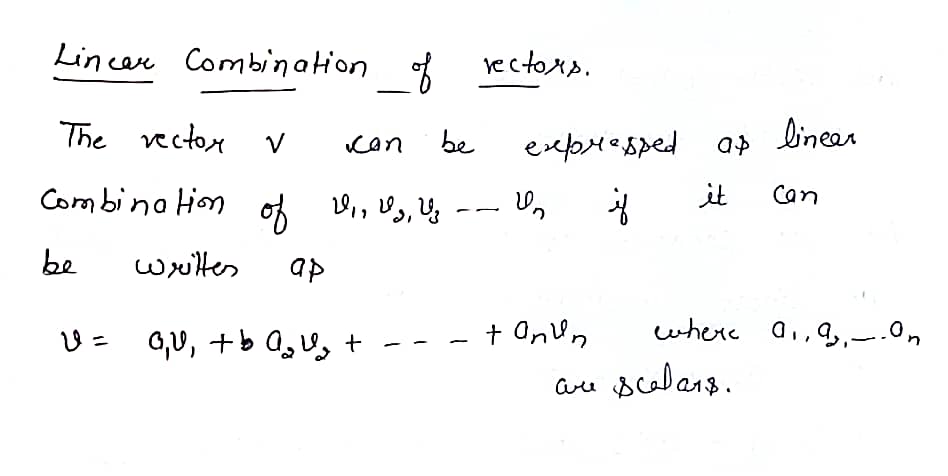 Linear Combination of vectors.
The vector v can be expressed as linear
Combination of v₁, v₂, v₃ -- vₙ if it can
be written as
v = a₁v₁ + b a₂v₂ + - - - + aₙvₙ where a₁, a₂, -.. aₙ
are scalars.